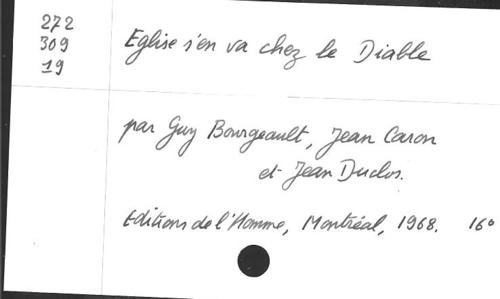 272
309
19
Eglise s'en va chez le Diable
par Guy Bourgeault, Jean Caron
et Jean Duclos.
Editions de l'Homme, Montréal, 1968. 16°